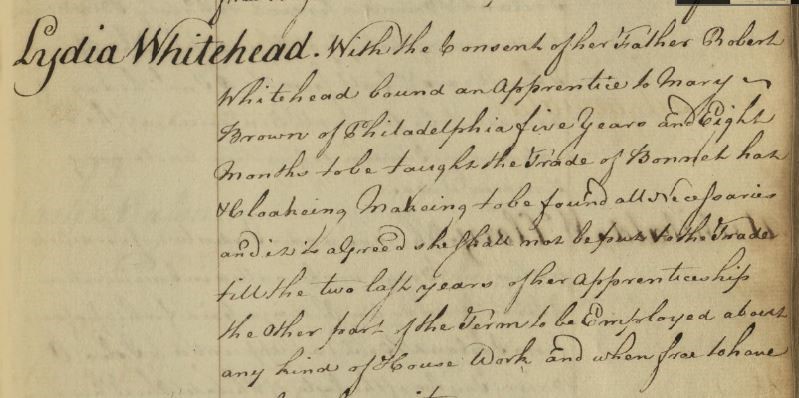 Lydia Whitehead. With the Consent of her Father Robert
Whitehead bound an Apprentice to Mary
Brown of Philadelphia five Years and Eight
Months to be taught the Trade of Bonnet hat
& Cloakeing Makeing to be found all Necessaries
and it is agreed she shall not be put to the Trade
till the two last years of her Apprenticeship
the other part of the Term to be Employed about
any kind of House Work and when free to have